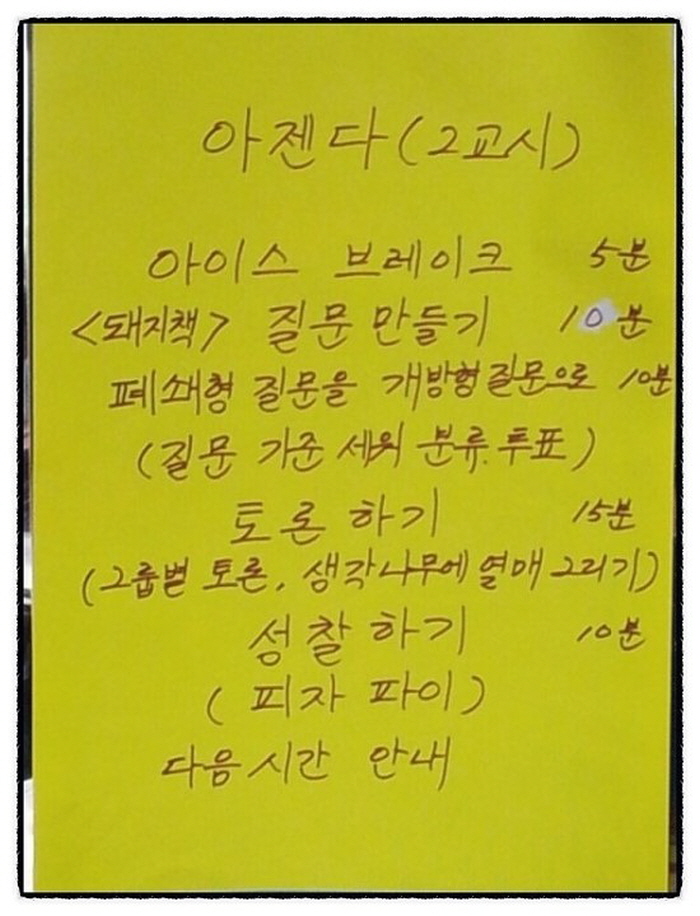 아젠다(2교시)
아이스 브레이크 5분
<돼지책> 질문 만들기 10분
폐쇄형 질문을 개방형질문으로 10분
(질문 기준 세워 분류.투표)
토론하기 15분
(그룹별 토론, 생각나무에 열매 그리기)
성찰하기 10분
(피자 파이)
다음시간 안내